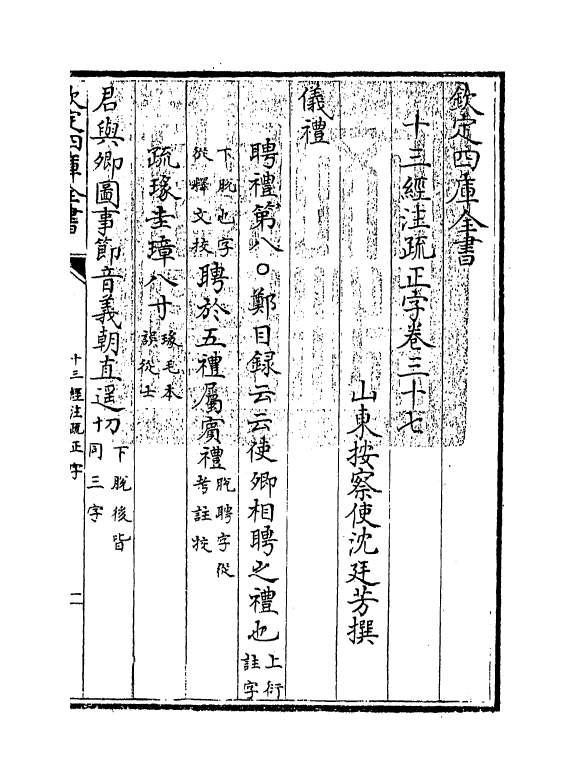 欽定四庫全書
十三經注疏正字卷三十七
山東按察使沈廷芳撰
儀禮
聘禮第八○鄭目録云云使卿相聘之禮也上衍註字
下脱也字從釋文校聘於五禮屬賓禮脱聘字從考註校
疏瑑圭璋八寸瑑毛本誤從土
君與卿圖事節音義朝直遥切下脱後皆同三字
欽定四庫全書
十三經注疏正字
二